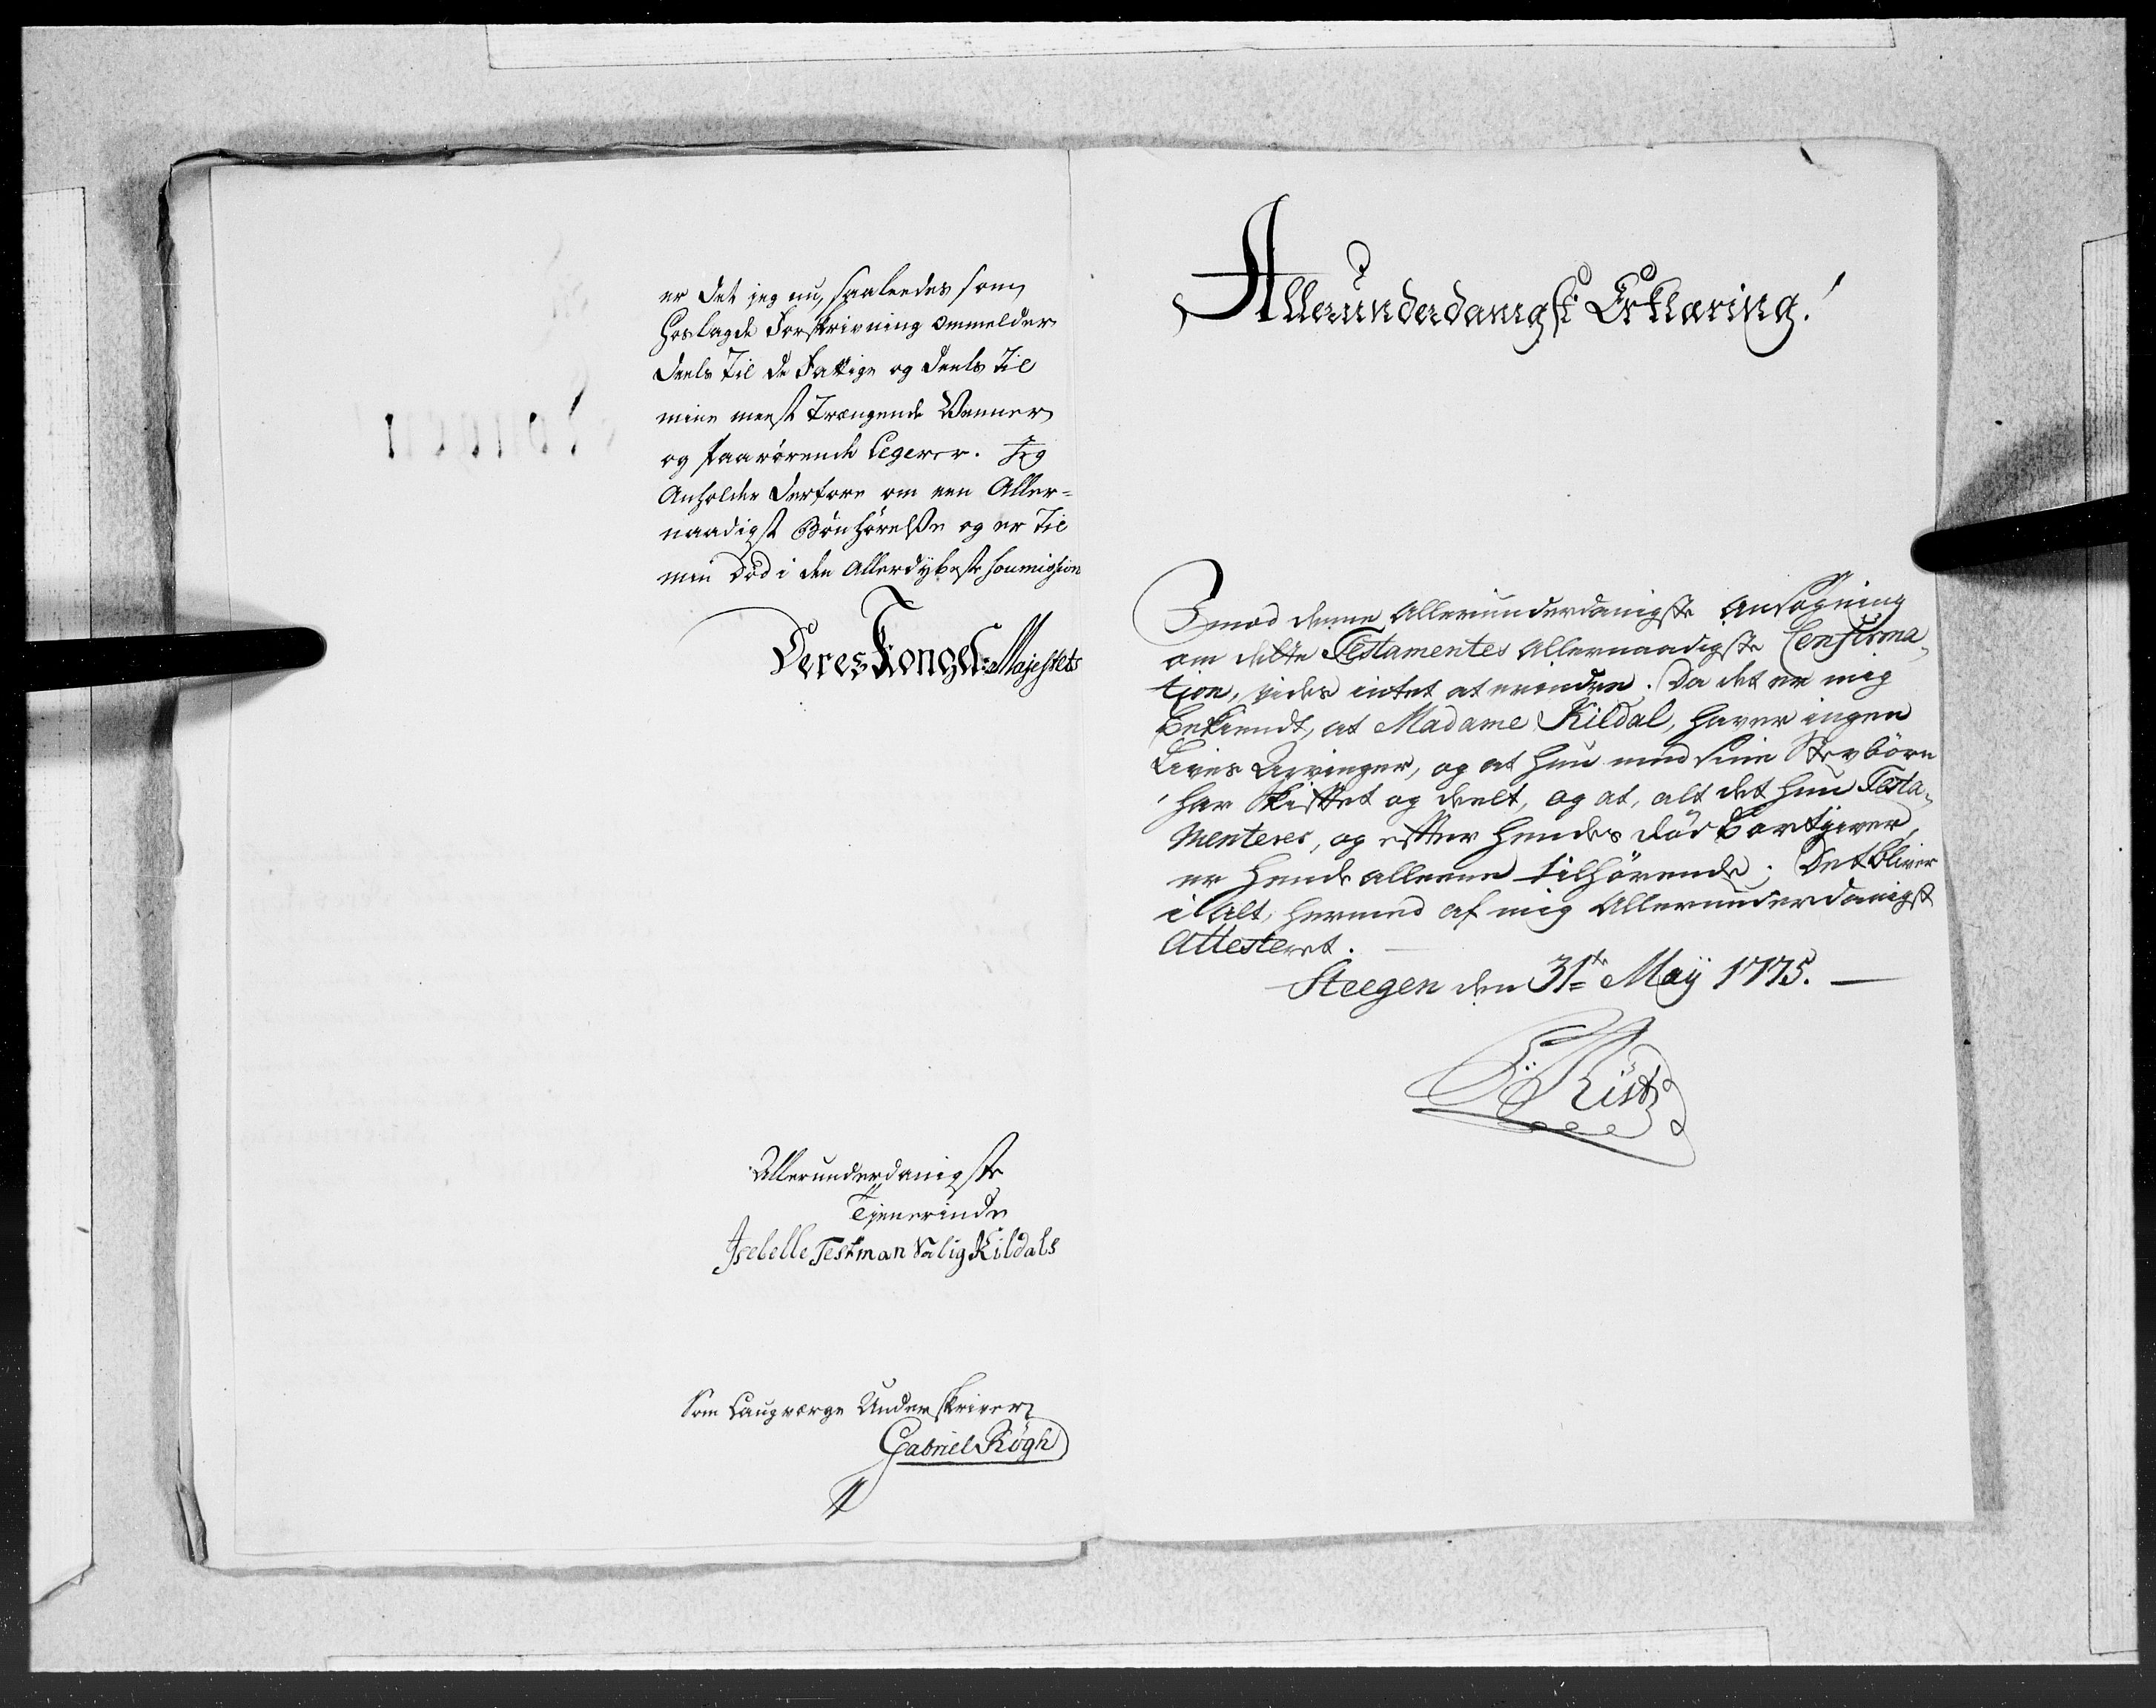 er det jeg nu, saaleedes som
hoslagde Forskrivning Ommelder
deels Til de Fattige og deels Til
mine meest Trængende Venner
og paarørende Legerer. Jeg
Anholder derfore om een Aller=
naadigst Bønhørelse og er Til
min Død i den Allerdybeste soumission
Deres Kongel: Majestets
Allerunderdanigste
Tjenerinde
Isebelle Testman Salig Kildals
Som Laugværge Underskriver
Gabriel Røgh
Allerunderdanigst Erklæring!
Imod denne Allerunderdanigste Ansøgning
om dette Testamentes Allernaadigste Confirma„
tion, vides intet at erindre. Da det er mig
bekiendt, at Madame Kildal, haver ingen
Livs Arvinger, og at hun med sine Stevbörn
har skiftet og deelt, og at, alt det hun Testa„
menterer, og efter hendes död bortgiver,
er hende alleene tilhörende; Det bliver
i alt, hermed af mig Allerunderdanigst
Attesteret.
Steegen den 31te Maÿ 1775.